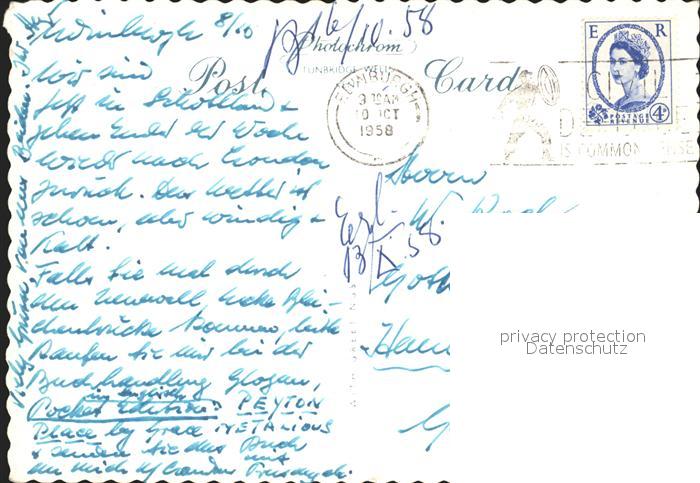 Edinburgh 8/10
Wir sind
jetzt in Schottland +
gehen Ende der Woche
wieder nach London
zurück. Das Wetter ist
schön, aber windig +
kalt.
Falls Sie mal durch
den Neuerwall, Ecke Blei-
chenbrücke kommen, bitte
kaufen Sie mir bei der
Buchhandlung Glogau,
in englisch
Pocket Edition: PEYTON
Place by Grace METALIOUS
+ senden Sie das Buch
an mich
Viele Grüsse von
(Photochrom)
TUNBRIDGE WELLS
Post Card
B 16/10.58
EDINBURGH
9 15AM
10 OCT
1958
E R
POSTAGE
REVENUE
4D
IS COMMON SENSE
Herrn
W.
Egl.
13/X.58
privacy protection
Datenschutz